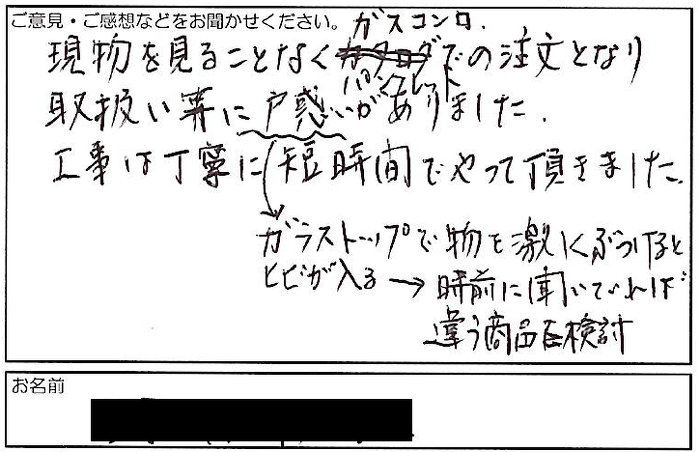 ご意見・ご感想などをお聞かせください。
ガスコンロ.
現物を見ることなくカタログでの注文となり
パンフレット
取扱い等に戸惑いがありました.
工事は丁寧に短時間でやって頂きました.
ガラストップで物を激しくぶつけると
ヒビが入る → 時前に聞いていれば
違う商品を検討
お名前